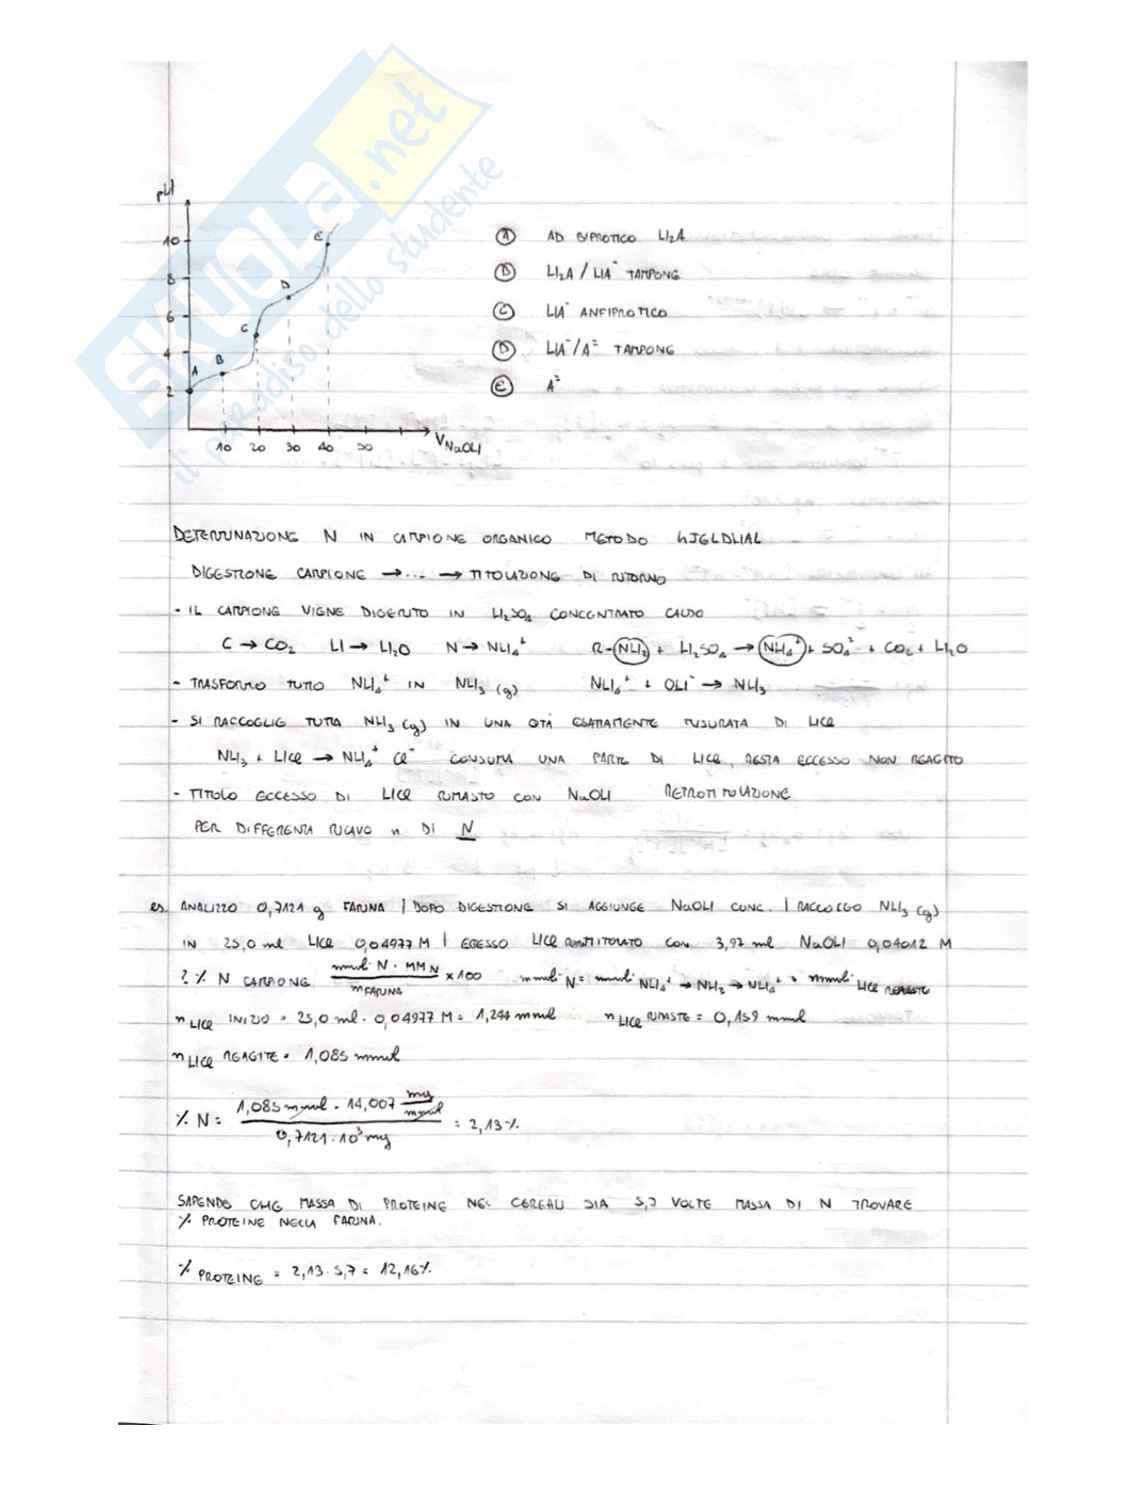 SKUOLA.net
il paradiso dello studente
pH
10
8
6
4
2
A B C D E
10 20 30 40 50
V NaOH
Ⓐ AD BIPROTICO H₂A
Ⓑ H₂A / HA⁻ TAMPONE
Ⓒ HA⁻ ANFIPROTICO
Ⓓ HA⁻/A²⁻ TAMPONE
Ⓔ A²⁻
DETERMINAZIONE N IN CAMPIONE ORGANICO METODO KJELDHAL
DIGESTIONE CAMPIONE → ... → TITOLAZIONE DI RITORNO
- IL CAMPIONE VIENE DIGERITO IN H₂SO₄ CONCENTRATO CALDO
C → CO₂ H → H₂O N → NH₄⁺ R-NH₂ + H₂SO₄ → NH₄⁺ + SO₄²⁻ + CO₂ + H₂O
- TRASFORMO TUTTO NH₄⁺ IN NH₃ (g) NH₄⁺ + OH⁻ → NH₃
- SI RACCOGLIE TUTTA NH₃ (g) IN UNA QTÀ ESATTAMENTE MISURATA DI HCl
NH₃ + HCl → NH₄⁺ Cl⁻ CONSUMA UNA PARTE DI HCl, RESTA ECCESSO NON REAGITO
- TITOLO ECCESSO DI HCl RIMASTO CON NaOH RETROTITOLAZIONE
PER DIFFERENZA RICAVO n DI N
es. ANALIZZO 0,7121 g FARINA | DOPO DIGESTIONE SI AGGIUNGE NaOH CONC. | RACCOLGO NH₃ (g)
IN 25,0 ml HCl 0,04977 M | ECCESSO HCl RETROTITOLATO CON 3,97 ml NaOH 0,04012 M
? % N CAMPIONE mmol N · MM N / m FARINA × 100 mmol N = mmol NH₄⁺ → NH₃ → NH₄⁺ = mmol HCl REAGITE
n HCl INIZIO = 25,0 ml · 0,04977 M = 1,244 mmol n HCl RIMASTE = 0,159 mmol
n HCl REAGITE = 1,085 mmol
% N = 1,085 mmol · 14,007 mg/mmol / 0,7121 · 10³ mg = 2,13 %
SAPENDO CHE MASSA DI PROTEINE NEI CEREALI SIA 5,7 VOLTE MASSA DI N TROVARE
% PROTEINE NELLA FARINA.
% PROTEINE = 2,13 · 5,7 = 12,16%